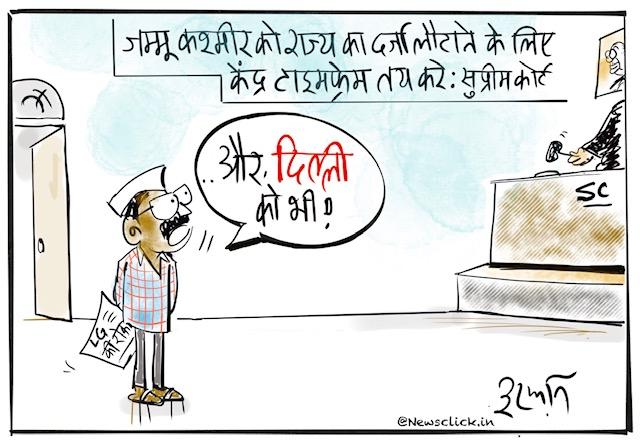 जम्मू कश्मीर को राज्य का दर्जा लौटाने के लिए
केंद्र टाइमफ्रेम तय करे: सुप्रीम कोर्ट
..और, दिल्ली
को भी!
SC
LG
की रोको
इरफ़ान
@Newsclick.in